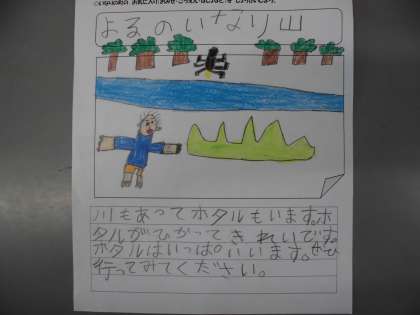 よるのいなり山
川もあってホタルもいます。ホ
タルがひかってきれいです。
ホタルはいっぱいいます。ぜひ
行ってみてください。